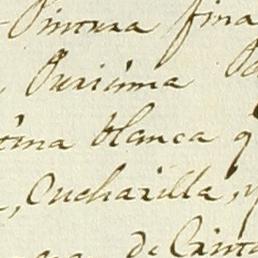 Pintura fina
Purisima
tina blanca q
, Cucharilla, y
de Cinta